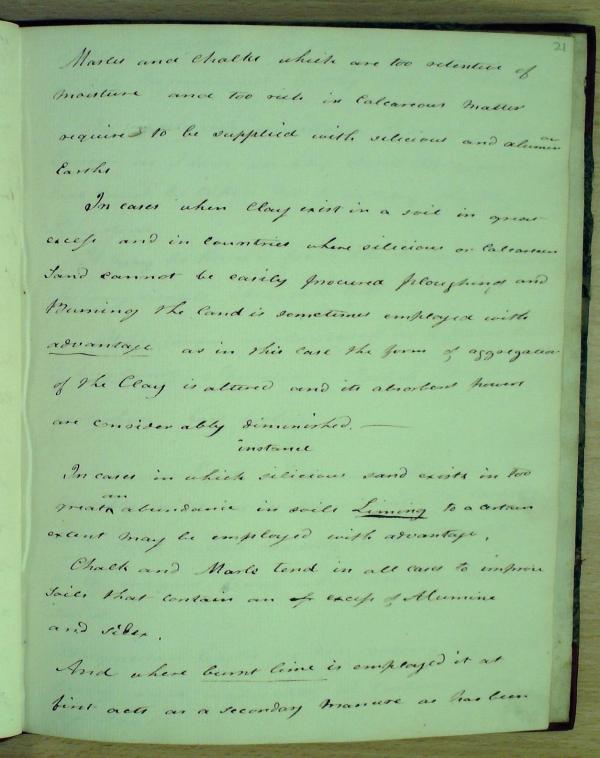 21
Marles and Chalks which are too retentive of
moisture and too rich in Calcareous Matter
require to be supplied with silicious and alumin
ous
Earths
In cases when Clay exist in a soil in great
excess and in countries where silicious or Calcareous
Sand cannot be easily procured ploughing and
Burning the land is sometimes employed with
advantage as in this case the form of aggregation
of the Clay is altered and its absorbent powers
are considerably diminished. —
instance
In cases in which silicious sand exists in too
great an abundance in soils Liming to a certain
extent may be employed with advantage.
Chalk and Marls tend in all cases to improve
Soils that contain an excess of Alumine
and Silex.
And where burnt lime is employed it at
first acts as a secondary manure as has been